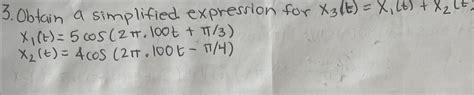 3. Obtain a simplified expression for x₃(t) = x₁(t) + x₂(t)
x₁(t) = 5 cos (2π.100t + π/3)
x₂(t) = 4cos (2π.100t - π/4)